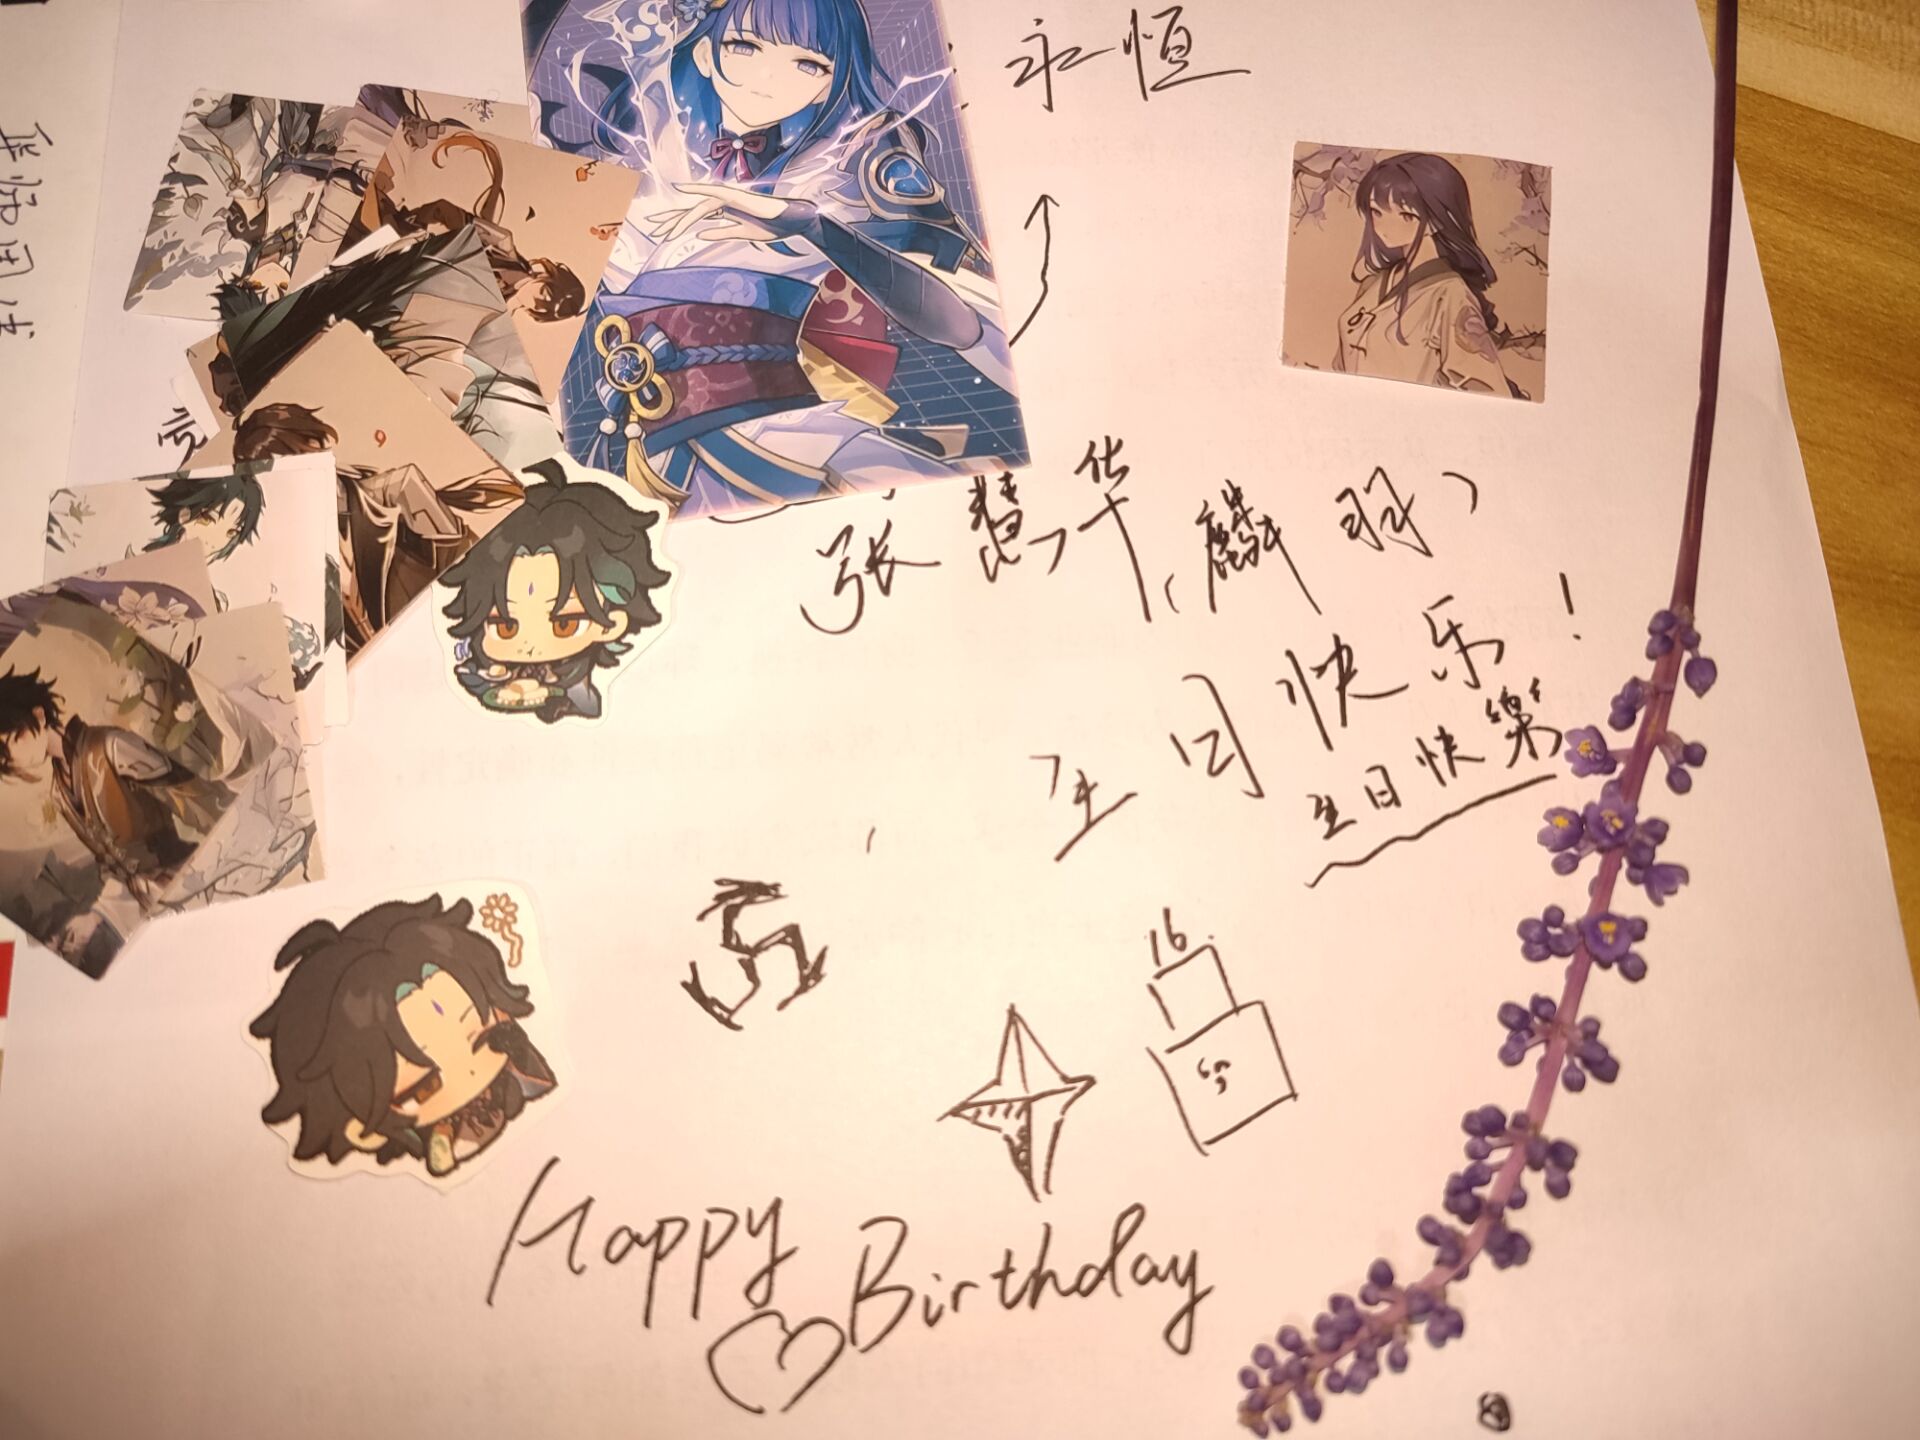 永恒
张慧华（麟羽）
生日快乐！
生日快樂
16
Happy
Birthday